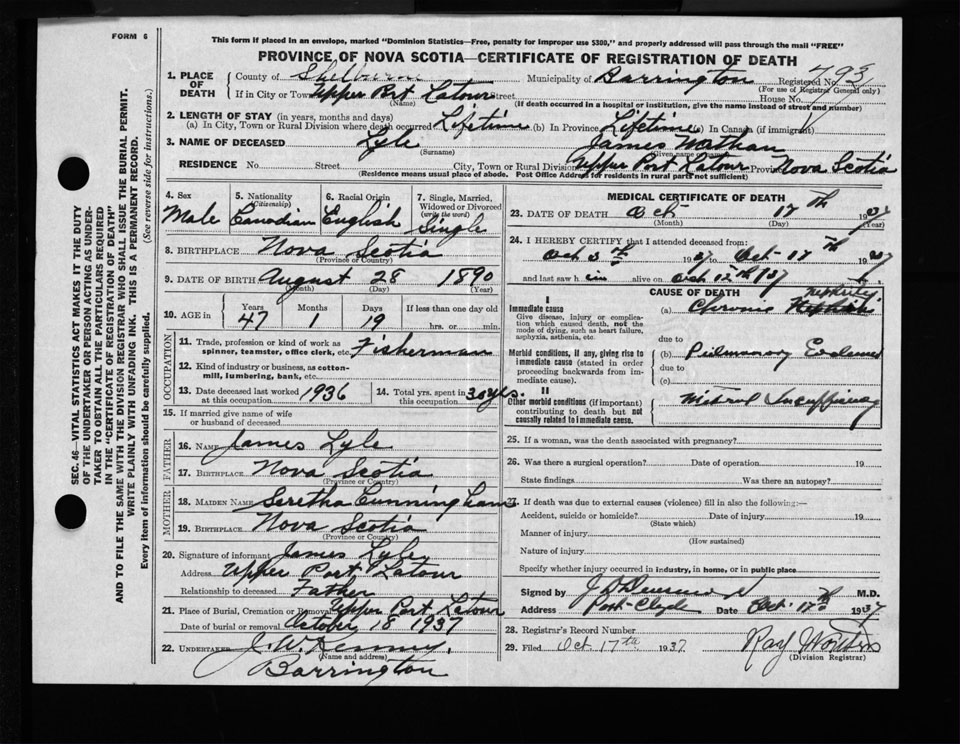 FORM 6
This form if placed in an envelope, marked "Dominion Statistics—Free, penalty for improper use $300," and properly addressed will pass through the mail "FREE"
PROVINCE OF NOVA SCOTIA—CERTIFICATE OF REGISTRATION OF DEATH
1. PLACE OF DEATH
County of Shelburne Municipality of Barrington Registered No. 793
(For use of Registrar General only)
If in City or Town Upper Port Latour Street House No.
(Name) (If death occurred in a hospital or institution, give the name instead of street and number)
2. LENGTH OF STAY (in years, months and days)
(a) In City, Town or Rural Division where death occurred Lifetime (b) In Province Lifetime (c) In Canada (if immigrant)
3. NAME OF DECEASED Lyle James Nathan
(Surname) (Given name)
RESIDENCE No. Street City, Town or Rural Division Upper Port Latour Province Nova Scotia
(Residence means usual place of abode. Post Office Address for residents in rural parts not sufficient)
4. Sex Male
5. Nationality (Citizenship) Canadian
6. Racial Origin English
7. Single, Married, Widowed or Divorced (write the word) Single
8. BIRTHPLACE Nova Scotia
(Province or Country)
9. DATE OF BIRTH August 28 1890
(Month) (Day) (Year)
10. AGE in Years Months Days If less than one day old
47 1 19 hrs. or min.
OCCUPATION
11. Trade, profession or kind of work as spinner, teamster, office clerk, etc. Fisherman
12. Kind of industry or business, as cotton-mill, lumbering, bank, etc.
13. Date deceased last worked at this occupation 1936
14. Total yrs. spent in this occupation 30 yrs.
15. If married give name of wife or husband of deceased
FATHER
16. NAME James Lyle
17. BIRTHPLACE Nova Scotia
(Province or Country)
MOTHER
18. MAIDEN NAME Seretha Cunningham
19. BIRTHPLACE Nova Scotia
(Province or Country)
20. Signature of informant James Lyle
Address Upper Port Latour
Relationship to deceased Father
21. Place of Burial, Cremation or Removal Upper Port Latour
Date of burial or removal October 18 1937
22. UNDERTAKER J. W. Kenney,
(Name and address)
Barrington
MEDICAL CERTIFICATE OF DEATH
23. DATE OF DEATH Oct 17th 1937
(Month) (Day) (Year)
24. I HEREBY CERTIFY that I attended deceased from:
Oct 1937 to Oct 17th 1937
and last saw him alive on Oct 12th 1937
CAUSE OF DEATH
I
Immediate cause
Give disease, injury or complication which caused death, not the mode of dying, such as heart failure, asphyxia, asthenia, etc.
(a) Chronic Nephritis
due to
Morbid conditions, if any, giving rise to immediate cause (stated in order proceeding backwards from immediate cause).
(b) Pulmonary
due to
(c)
II
Other morbid conditions (if important) contributing to death but not causally related to immediate cause.
Mitral Insufficiency
25. If a woman, was the death associated with pregnancy?
26. Was there a surgical operation? Date of operation 19
State findings Was there an autopsy?
27. If death was due to external causes (violence) fill in also the following:—
Accident, suicide or homicide? Date of injury 19
(State which)
Manner of injury
(How sustained)
Nature of injury
Specify whether injury occurred in industry, in home, or in public place
Signed by M.D.
Address Port-Clyde Date Oct. 17th 1937
28. Registrar's Record Number
29. Filed Oct 17th 1937 Ray
(Division Registrar)
SEC. 46—VITAL STATISTICS ACT MAKES IT THE DUTY
OF THE UNDERTAKER OR PERSON ACTING AS UNDER-
TAKER TO OBTAIN ALL THE PARTICULARS REQUIRED
IN THE "CERTIFICATE OF REGISTRATION OF DEATH"
AND TO FILE THE SAME WITH THE DIVISION REGISTRAR WHO SHALL ISSUE THE BURIAL PERMIT.
WRITE PLAINLY WITH UNFADING INK. THIS IS A PERMANENT RECORD.
Every item of information should be carefully supplied. (See reverse side for instructions.)